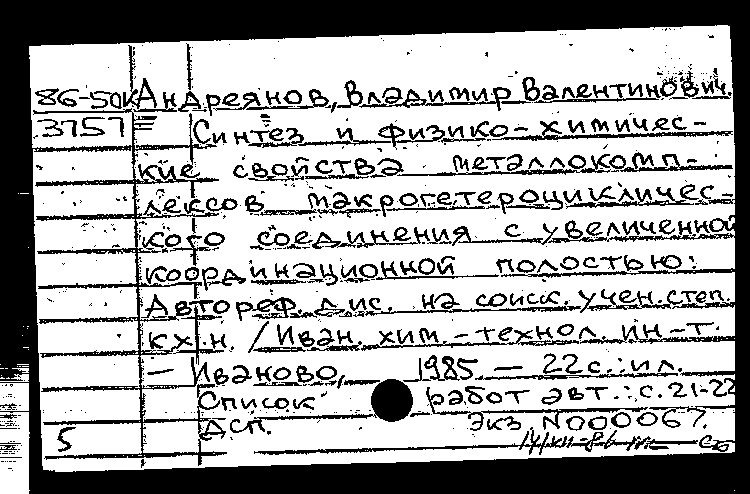 86-50к Андреянов, Владимир Валентинович.
3757 Синтез и физико-химичес-
кие свойства металлокомп-
лексов макрогетероцикличес-
кого соединения с увеличенной
координационной полостью:
Автореф. дис. на соиск. учен. степ.
к.х.н. / Иван. хим.-технол. ин-т.
— Иваново, 1985. — 22 с.: ил.
Список работ авт.: с. 21-22
ДСП. Экз. N000067.
5